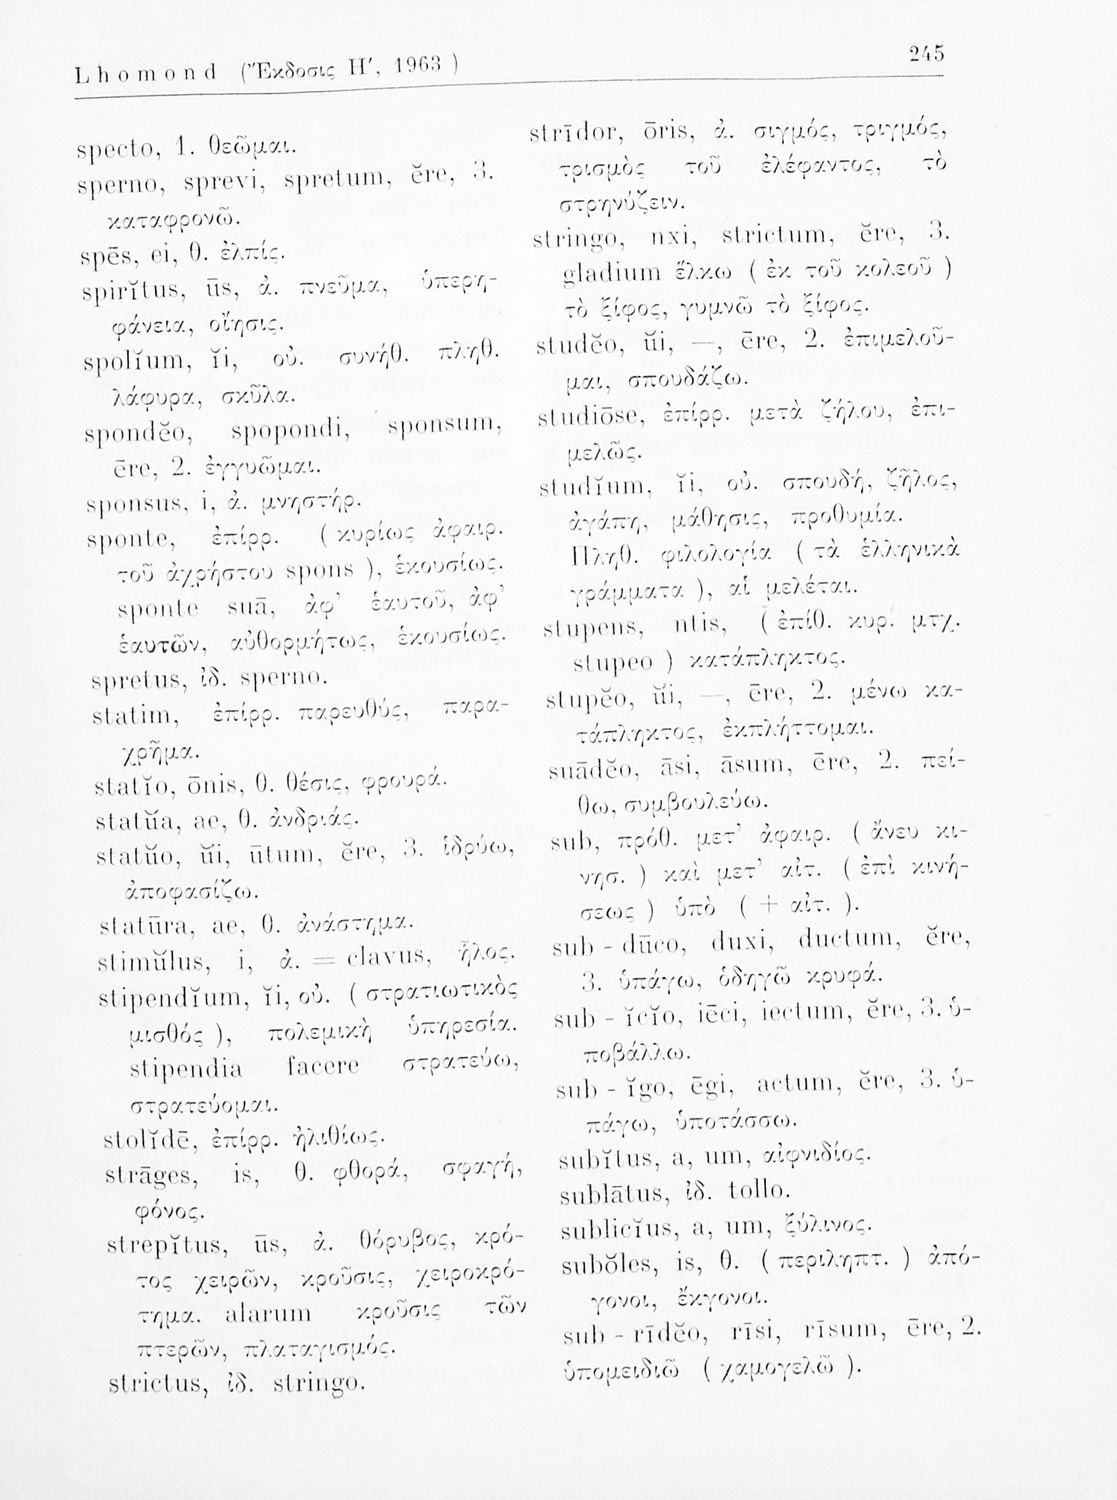 Lhomond (Ἔκδοσις Η΄, 1963 )
245
specto, 1. θεῶμαι.
sperno, sprevi, spretum, ĕre, 3.
καταφρονῶ.
spēs, ei, θ. ἐλπίς.
spirĭtus, ūs, ἀ. πνεῦμα, ὑπερη-
φάνεια, οἴησις.
spolĭum, ĭi, οὐ. συνήθ. πληθ.
λάφυρα, σκῦλα.
spondĕo, spopondi, sponsum,
ēre, 2. ἐγγυῶμαι.
sponsus, i, ἀ. μνηστήρ.
sponte, ἐπίρρ. ( κυρίως ἀφαιρ.
τοῦ ἀχρήστου spons ), ἑκουσίως.
sponte suā, ἀφ᾽ ἑαυτοῦ, ἀφ᾽
ἑαυτῶν, αὐθορμήτως, ἑκουσίως.
spretus, ἰδ. sperno.
statim, ἐπίρρ. παρευθύς, παρα-
χρῆμα.
statĭo, ōnis, θ. θέσις, φρουρά.
statŭa, ae, θ. ἀνδριάς.
statŭo, ŭi, ūtum, ĕre, 3. ἱδρύω,
ἀποφασίζω.
statūra, ae, θ. ἀνάστημα.
stimŭlus, i, ἀ. = clavus, ἧλος.
stipendĭum, ĭi, οὐ. ( στρατιωτικὸς
μισθός ), πολεμικὴ ὑπηρεσία.
stipendia facere στρατεύω,
στρατεύομαι.
stolĭdē, ἐπίρρ. ἠλιθίως.
strāges, is, θ. φθορά, σφαγή,
φόνος.
strepĭtus, ūs, ἀ. θόρυβος, κρό-
τος χειρῶν, κροῦσις, χειροκρό-
τημα. alarum κροῦσις τῶν
πτερῶν, πλαταγισμός.
strictus, ἰδ. stringo.
strīdor, ōris, ἀ. σιγμός, τριγμός,
τρισμὸς τοῦ ἐλέφαντος, τὸ
στρηνύζειν.
stringo, nxi, strictum, ĕre, 3.
gladium ἕλκω ( ἐκ τοῦ κολεοῦ )
τὸ ξίφος, γυμνῶ τὸ ξίφος.
studĕo, ŭi, —, ēre, 2. ἐπιμελοῦ-
μαι, σπουδάζω.
studiōse, ἐπίρρ. μετὰ ζήλου, ἐπι-
μελῶς.
studĭum, ĭi, οὐ. σπουδή, ζῆλος,
ἀγάπη, μάθησις, προθυμία.
Πληθ. φιλολογία ( τὰ ἑλληνικὰ
γράμματα ), αἱ μελέται.
stupens, ntis, ( ἐπίθ. κυρ. μτχ.
stupeo ) κατάπληκτος.
stupĕo, ŭi, —, ēre, 2. μένω κα-
τάπληκτος, ἐκπλήττομαι.
suādĕo, āsi, āsum, ēre, 2. πεί-
θω, συμβουλεύω.
sub, πρόθ. μετ᾽ ἀφαιρ. ( ἄνευ κι-
νησ. ) καὶ μετ᾽ αἰτ. ( ἐπὶ κινή-
σεως ) ὑπὸ ( + αἰτ. ).
sub - dūco, duxi, ductum, ĕre,
3. ὑπάγω, ὁδηγῶ κρυφά.
sub - ĭcĭo, iēci, iectum, ĕre, 3. ὑ-
ποβάλλω.
sub - ĭgo, ēgi, actum, ĕre, 3. ὑ-
πάγω, ὑποτάσσω.
subĭtus, a, um, αἰφνιδίος.
sublātus, ἰδ. tollo.
sublicĭus, a, um, ξύλινος.
subŏles, is, θ. ( περιληπτ. ) ἀπό-
γονοι, ἔκγονοι.
sub - rīdĕo, rīsi, rīsum, ēre, 2.
ὑπομειδιῶ ( χαμογελῶ ).